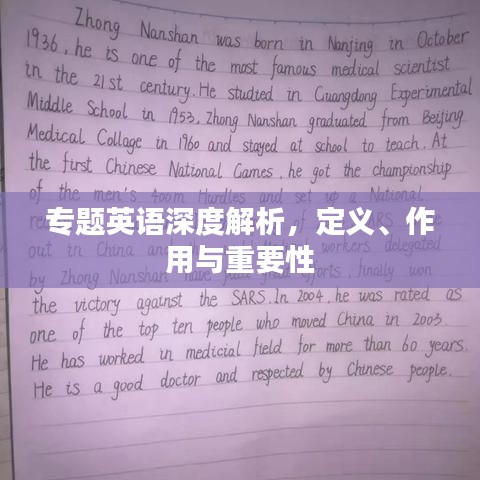 Zhong Nanshan was born in Nanjing in October
1936, he is one of the most famous medical scientist
in the 21st century. He studied in Guangdong Experimental
Middle School in 1953. Zhong Nanshan graduated from Beijing
Medical Collage in 1960 and stayed at school to teach. At
the first Chinese National Games, he got the championship
of the men's 400m Hurdles and set up a National
专题英语深度解析，定义、作
用与重要性
out in China and workers delegated
by Zhong Nanshan have efforts, finally won
the victory against the SARS. In 2004, he was rated as
one of the top ten people who moved China in 2003.
He has worked in medicial field for more than 60 years.
He is a good doctor and respected by Chinese people.